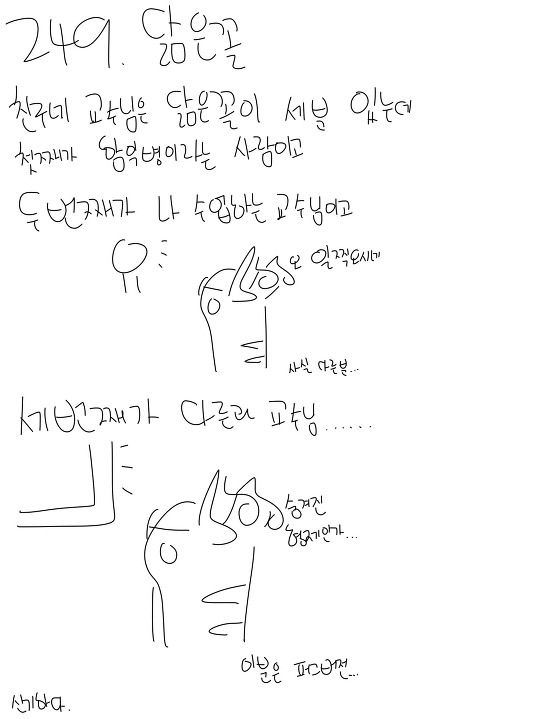 249. 닮은꼴
친구네 교수님은 닮은꼴이 세분 있는데
첫째가 황억병이라는 사람이고
두번째가 나 수업하는 교수님이고
오 일찍오시네
사실 다른분...
세번째가 다른과 교수님......
숨겨진
형제인가...
이분은 퍼스버전...
신기하다.